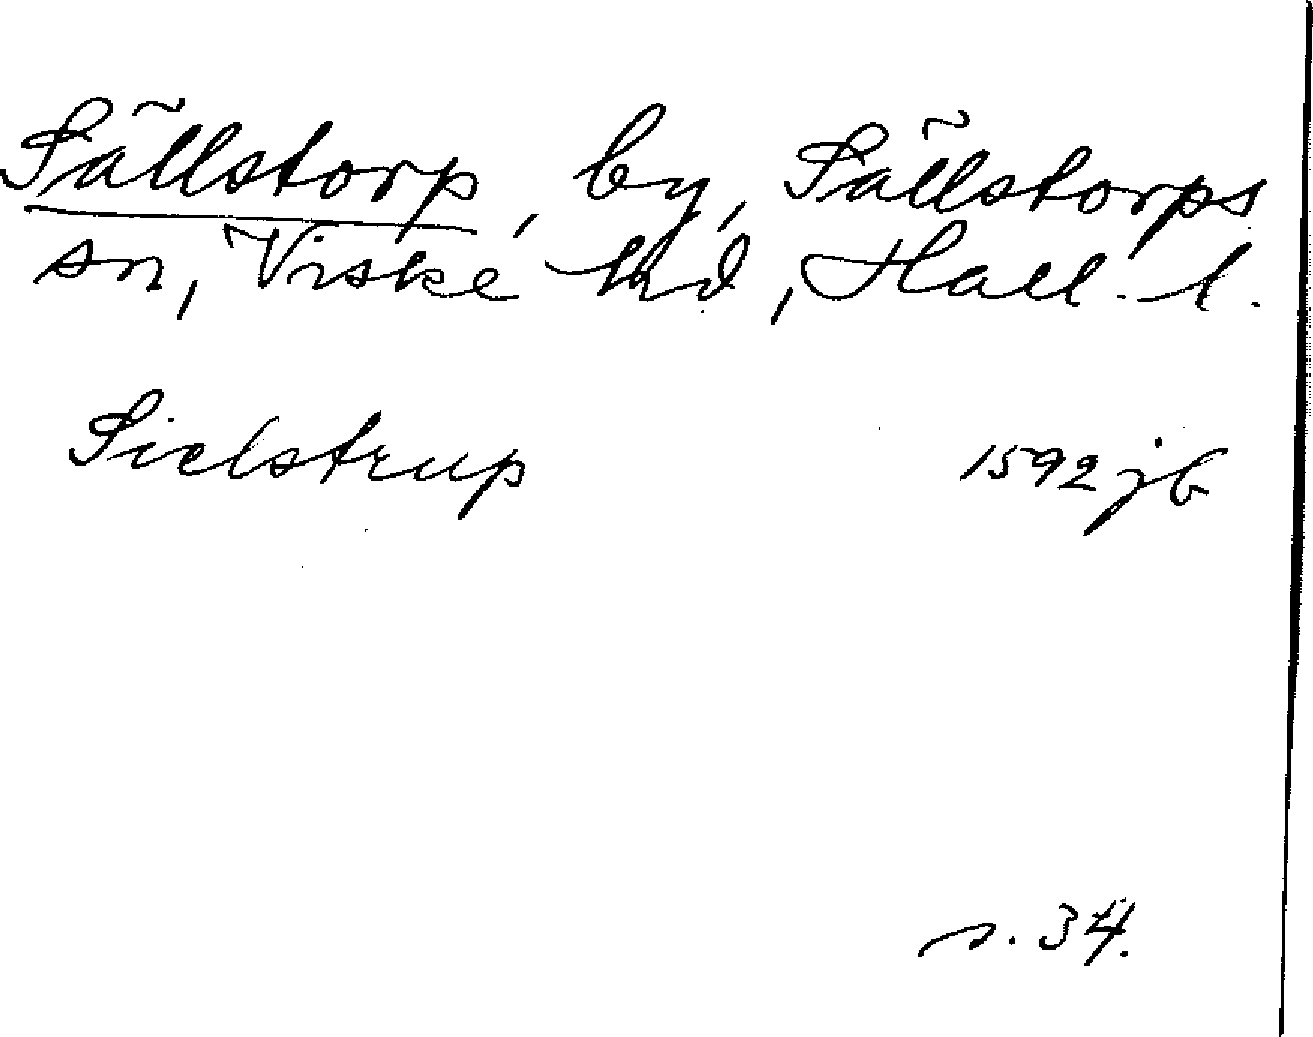 Sällstorp, by, Sällstorps
sn, Viske hd, Hall. l.
Sielstrup 1592 jb
s. 34.